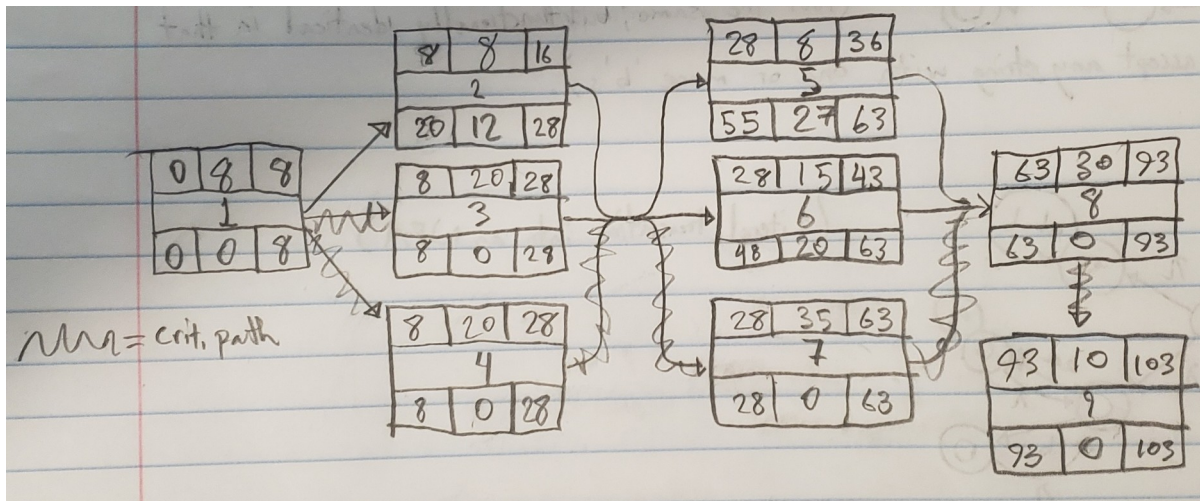 0 8 8
1
0 0 8
8 8 16
2
20 12 28
8 20 28
3
8 0 28
8 20 28
4
8 0 28
28 8 36
5
55 27 63
28 15 43
6
48 20 63
28 35 63
7
28 0 63
63 30 93
8
63 0 93
93 10 103
9
93 0 103
= crit. path